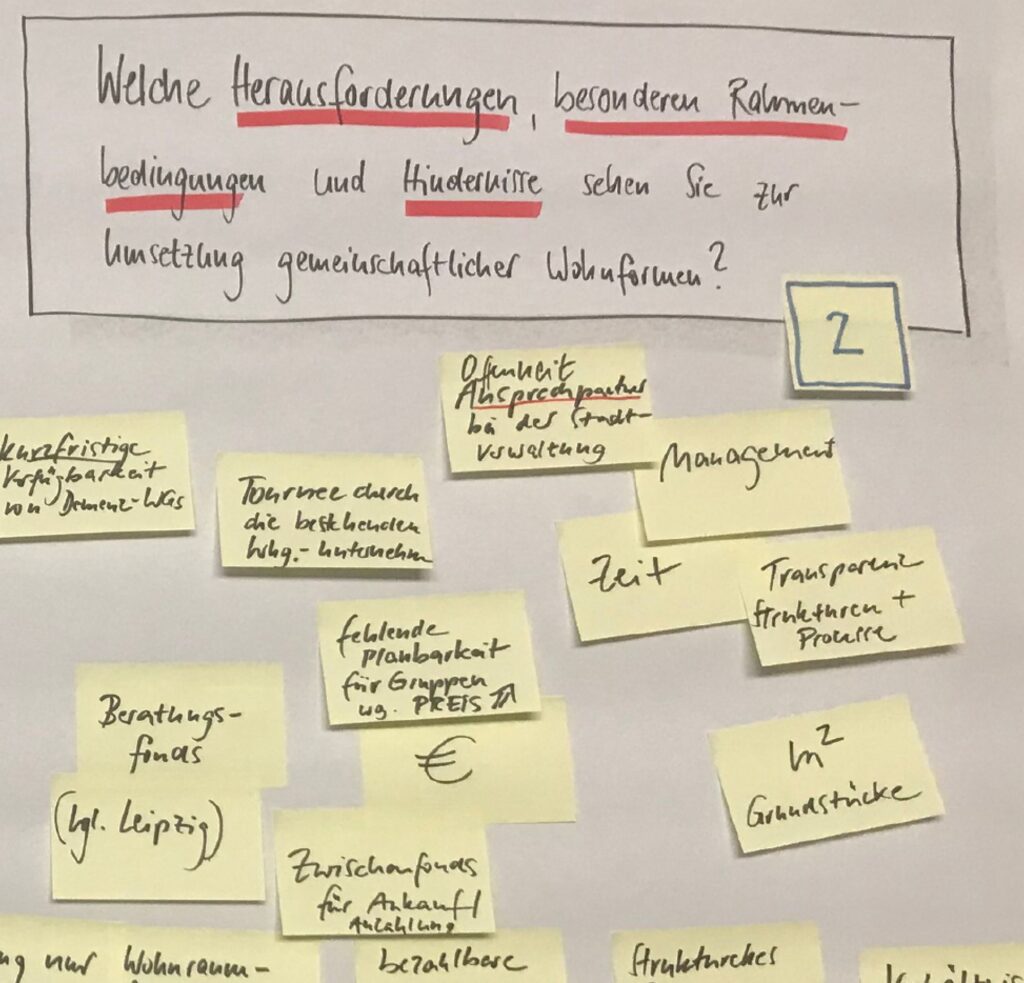 Welche Herausforderungen, besonderen Rahmen-
bedingungen und Hindernisse sehen Sie zur
Umsetzung gemeinschaftlicher Wohnformen?
2
Offenheit
Ansprechpartner
bei der Stadt-
verwaltung
Management
kurzfristige
Verfügbarkeit
von Demenz-WGs
Tournee durch
die bestehenden
Whg.-Unternehm
Zeit
Transparenz
Strukturen +
Prozesse
fehlende
Planbarkeit
für Gruppen
wg. PREIS ↗
€
Beratungs-
fonds
(vgl. Leipzig)
m²
Grundstücke
Zwischenfonds
für Ankauf/
Anzahlung
nur Wohnraum-
bezahlbare